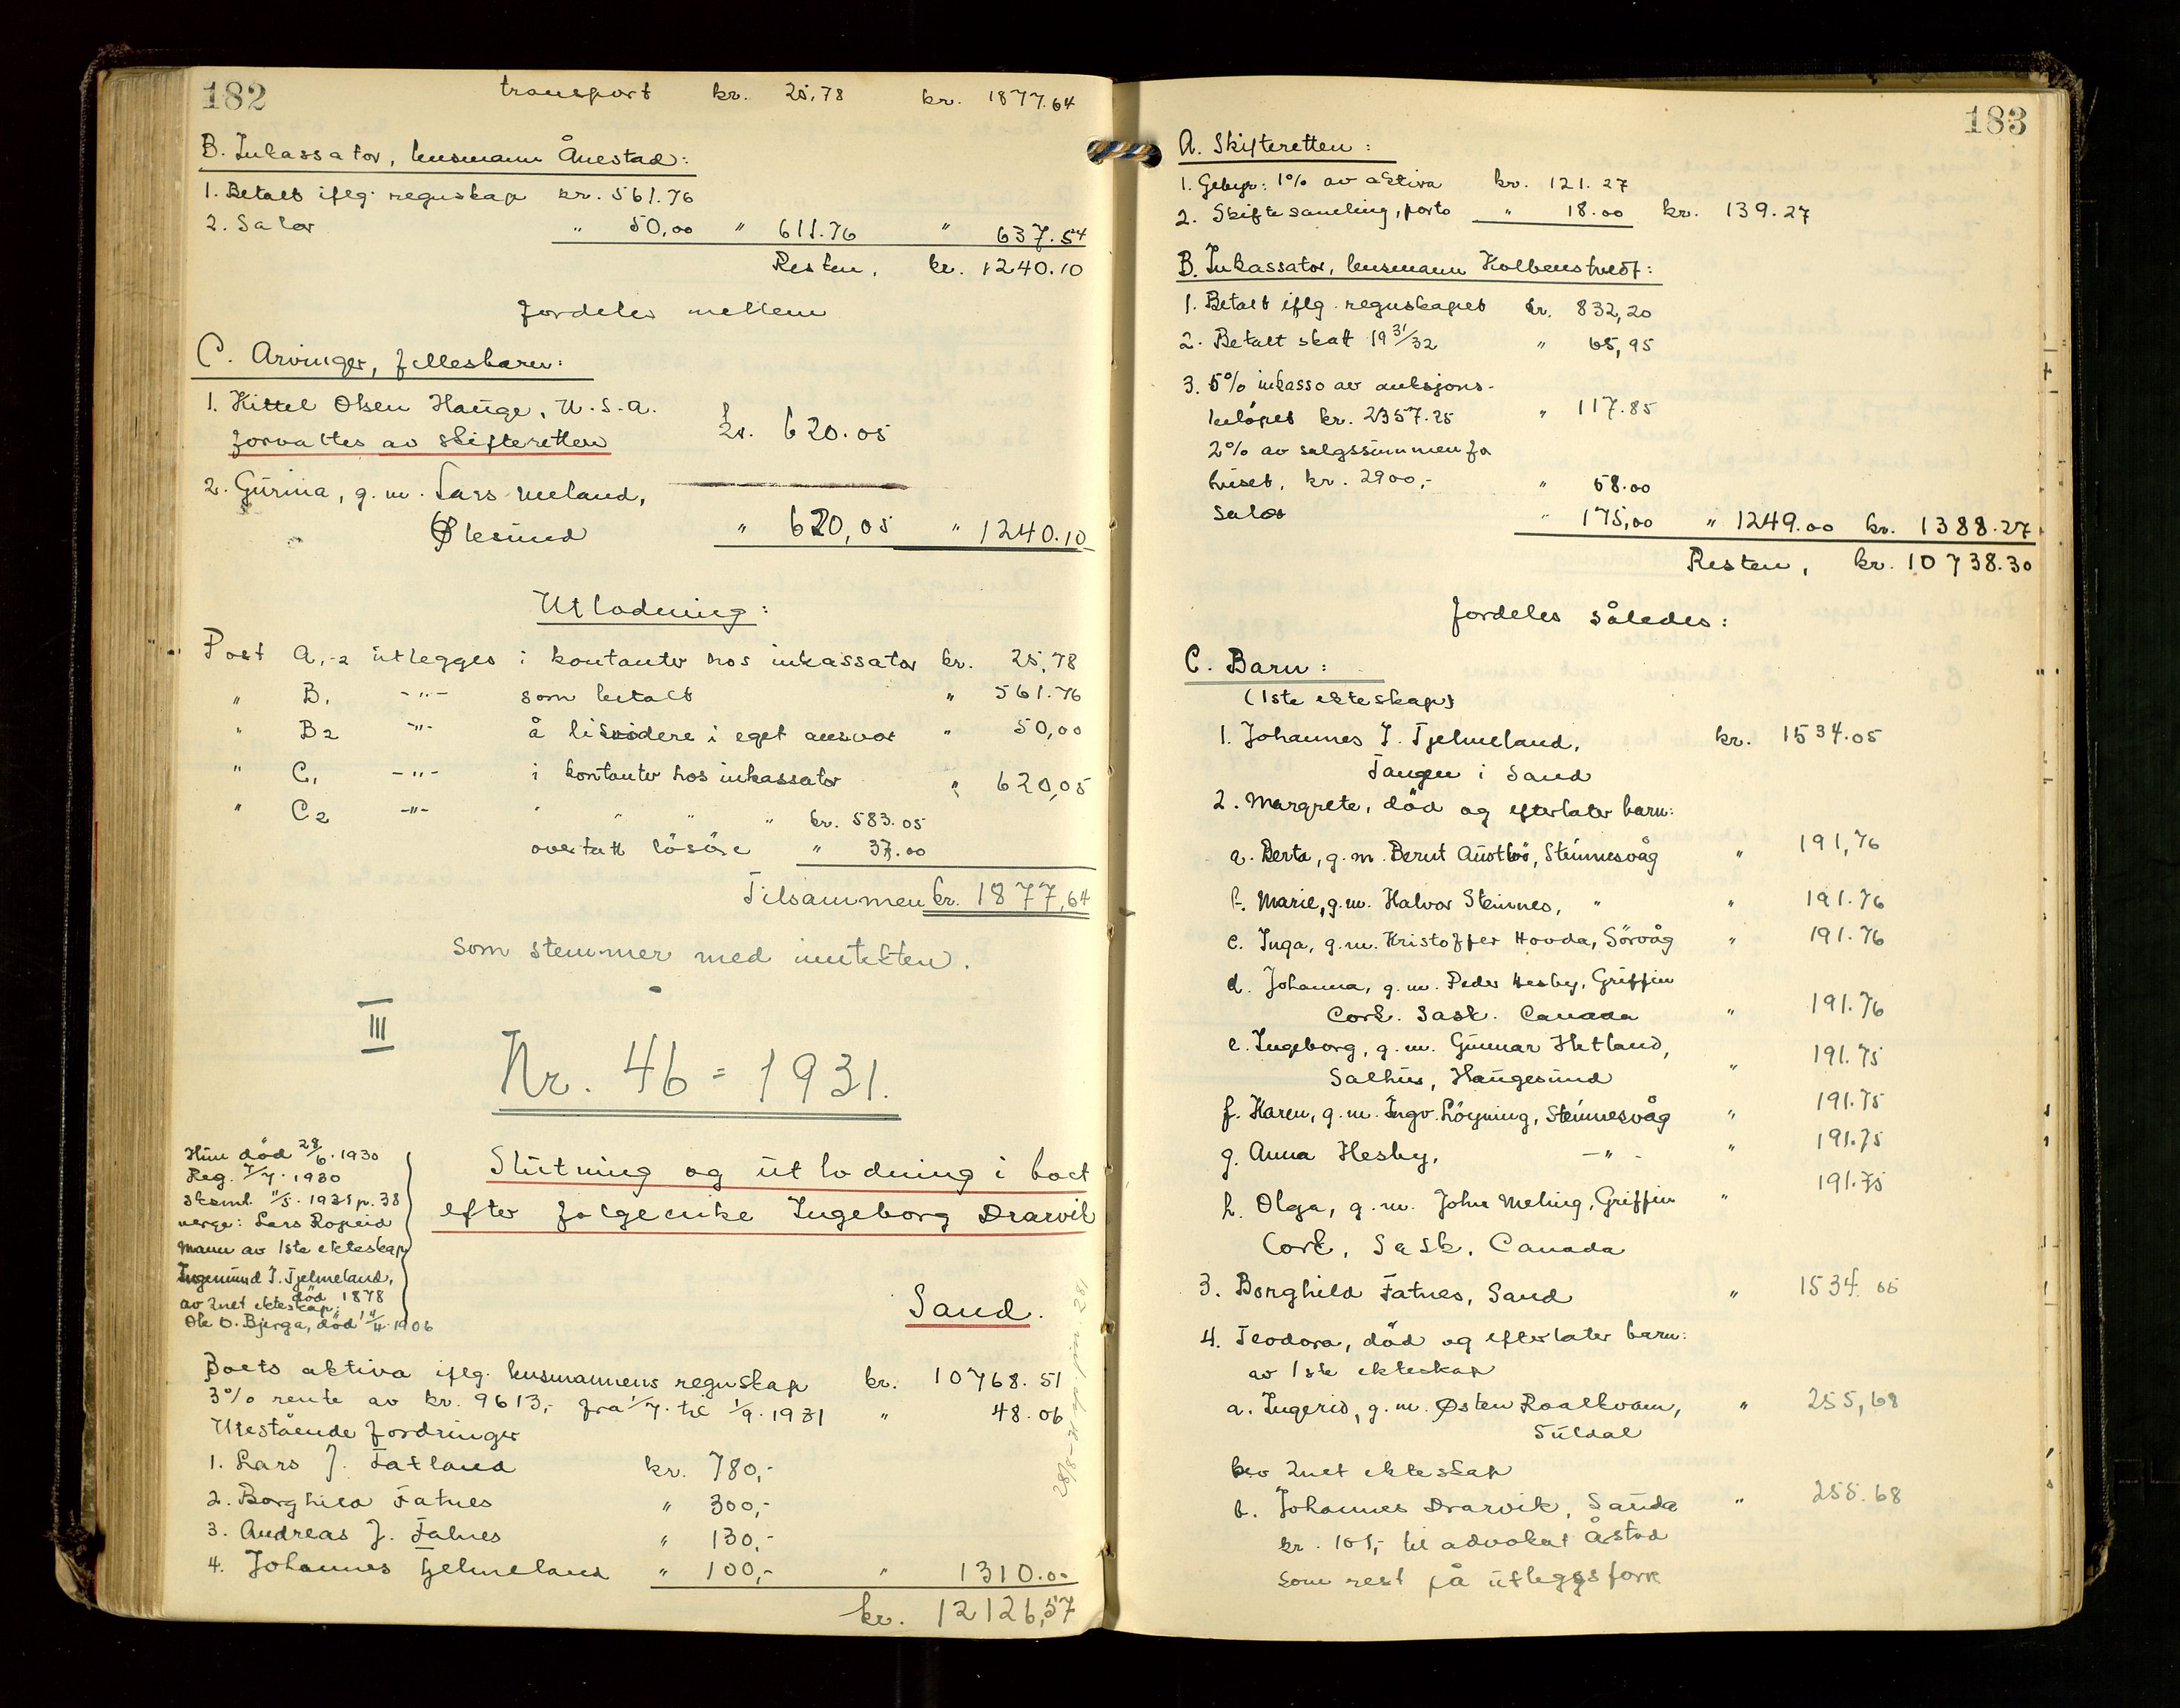 182
transport kr. 25,78 kr. 1877.64
B. Inkassator, lensmann Ånestad:
1. Betalt iflg. regnskap kr. 561.76
2. Salær " 50,00 " 611.76 " 637.54
Resten, kr. 1240.10
fordeles mellem
C. Arvinger, fellesbarn:
1. Kittel Olsen Hauge, U.S.A.
forvaltes av skifteretten kr. 620.05
2. Gurina, g.m. Lars Meland,
Ølesund " 620,05 " 1240.10
Utlodning:
Post A,-2 utlegges i kontanter hos inkassator kr. 25,78
" B, -"- som betalt " 561.76
" B2 -"- å likvidere i eget ansvar " 50,00
" C, -"- i kontanter hos inkassator " 620,05
" C2 -"- " " " " kr. 583.05
overtatt løsøre " 37.00
Tilsammen kr. 1877,64
som stemmer med inntekten.
III
Nr. 46 = 1931.
Hun død 28/6.1930
Reg. 7/7.1930
sksml. 11/5.1931 p. 38
verge: Lars Ropeid
Mann av 1ste ekteskap
Ingemund J. Tjelmeland,
død 1878
av 2net ekteskap:
Ole O. Bjerga, død 14/4.1906
Slutning og utlodning i boet
efter følgeenke Ingeborg Drarvik
Sand.
Boets aktiva iflg. lensmannens regnskap kr. 10768.51
3% rente av kr. 9613,- fra 1/7. til 1/9.1931 " 48.06
Utestående fordringer
1. Lars J. Fatland kr. 780,-
2. Borghild Fatnes " 300,-
3. Andreas J. Fatnes " 130,-
4. Johannes Tjelmeland " 100,- " 1310.00
kr. 12126,57
183
A. Skifteretten:
1. Gebyr: 1% av aktiva kr. 121.27
2. Skiftesamling, porto " 18.00 kr. 139.27
B. Inkassator, lensmann Kolbenstvedt:
1. Betalt iflg. regnskapet kr. 832,20
2. Betalt skatt 19 31/32 " 65,95
3. 5% inkasso av auksjons-
beløpet kr. 2357.25 " 117.85
2% av salgssummen fo
huset, kr. 2900,- " 58.00
Salær " 175,00 " 1249.00 kr. 1388.27
Resten, kr. 10738.30
fordeles således:
C. Barn:
(1ste ekteskap)
1. Johannes I. Tjelmeland, kr. 1534.05
Tangen i Sand
2. Margrete, død og efterlater barn:
a. Berta, g.m. Bernt Austbø, Steinnesvåg " 191,76
b. Marie, g.m. Halvor Steinnes, " " 191.76
c. Inga, g.m. Kristoffer Hovda, Sørvåg " 191.76
d. Johanna, g.m. Peder Hesby, Griffin
Cork. Sask. Canada " 191.76
e. Ingeborg, g.m. Gunnar Hetland,
Salhus, Haugesund " 191.75
f. Karen, g.m. Ingv. Løyning, Steinnesvåg " 191.75
g. Anna Hesby, -"- " 191.75
h. Olga, g.m. John Meling, Griffin " 191.75
Cork, Sask, Canada
3. Borghild Fatnes, Sand " 1534.05
4. Teodora, død og efterlater barn:
av 1ste ekteskap
a. Ingerid, g.m. Østen Roalkvam, " 255,68
Suldal
av 2net ekteskap
b. Johannes Drarvik, Sauda " 255.68
kr. 101,- til advokat Åstad
som rest på utleggsforr